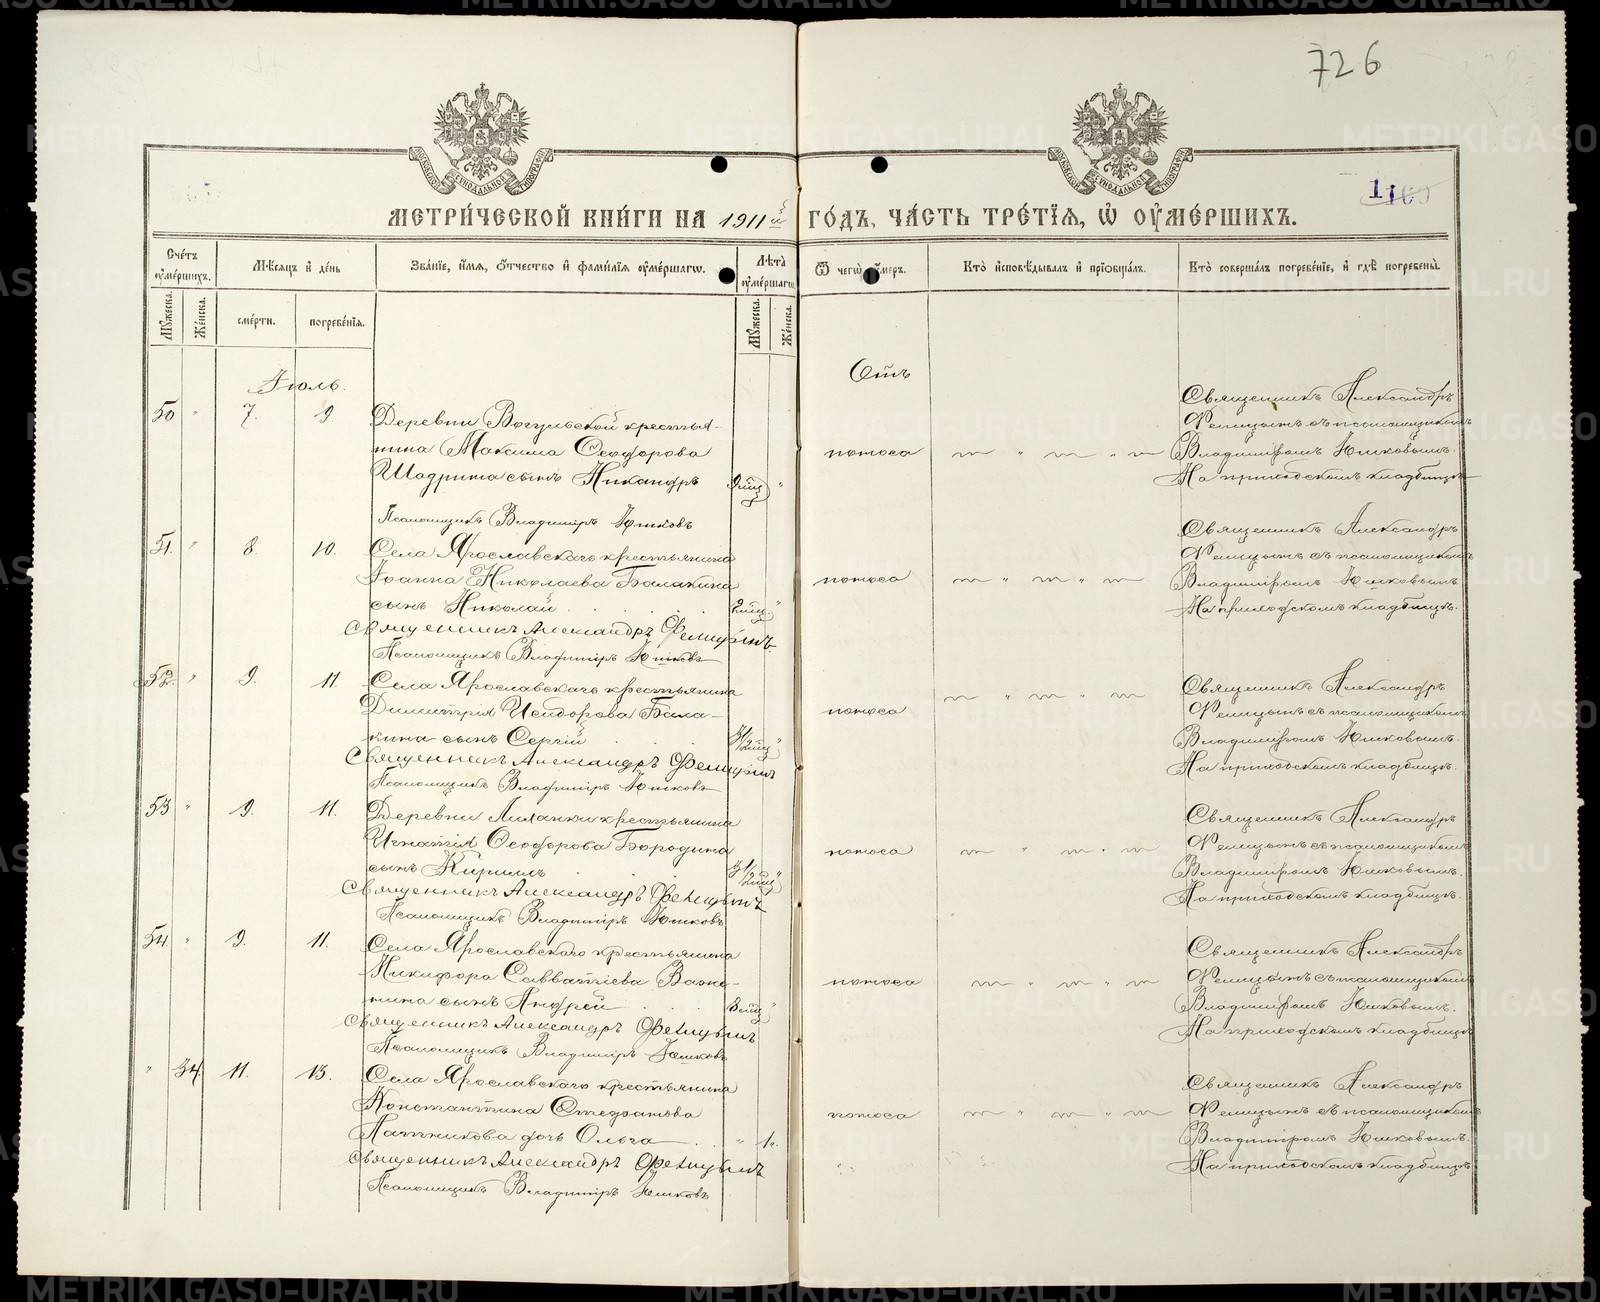 726
1169
МЕТРИ́ЧЕСКОЙ КНИ́ГИ НА 1911й ГО́ДЪ, ЧА́СТЬ ТРЕ́ТЇѦ, Ѡ ОУМЕ́РШИХЪ.
Сче́тъ оуме́ршихъ.
Мꙋ́жеска.
Же́нска.
Мѣ́сѧцъ и де́нь
сме́рти.
погребе́нїѧ.
Зва́нїе, и́мѧ, о́тчество и фами́лїѧ оуме́ршагѡ.
Лѣ́та оуме́ршагѡ.
Мꙋ́жеска.
Же́нска.
Ѿ чегѡ̀ оу́меръ.
Кто̀ исповѣ́дывалъ и прїобща́лъ.
Кто̀ соверша́лъ погребе́нїе, и гдѣ̀ погребены̀.
Іюль.
Отъ
50 " 7. 9.
Деревни Вогульской крестья-
нина Максима Ѳеодорова
Шадрина сынъ Никандръ 9 мѣс. "
Псаломщикъ Владиміръ Юшковъ
поноса
Священникъ Александръ
Фелицынъ съ псаломщикомъ
Владиміромъ Юшковымъ.
На приходскомъ кладбищѣ
51. " 8. 10.
Села Ярославскаго крестьянина
Іоанна Николаева Балакина
сынъ Николай 2 мѣс. "
Священникъ Александръ Фелицынъ.
Псаломщикъ Владиміръ Юшковъ
поноса
Священникъ Александръ
Фелицынъ съ псаломщикомъ
Владиміромъ Юшковымъ
На приходскомъ кладбищѣ.
52. " 9. 11
Села Ярославскаго крестьянина
Димитрія Исидорова Бала-
кина сынъ Сергій 3½ мѣс. "
Священникъ Александръ Фелицынъ
Псаломщикъ Владиміръ Юшковъ
поноса
Священникъ Александръ
Фелицынъ съ псаломщикомъ
Владиміромъ Юшковымъ.
На приходскомъ кладбищѣ.
53 " 9. 11.
Деревни крестьянина
Игнатія Ѳеодорова Бородина
сынъ Кириллъ 3½ мѣс. "
Священникъ Александръ Фелицынъ
Псаломщикъ Владиміръ Юшковъ
поноса
Священникъ Александръ
Фелицынъ съ псаломщикомъ
Владиміромъ Юшковымъ.
На приходскомъ кладбищѣ.
54. " 9. 11.
Села Ярославскаго крестьянина
Никифора Савватіева Важе-
нина сынъ Андрей 8 мѣс. "
Священникъ Александръ Фелицынъ
Псаломщикъ Владиміръ Юшковъ
поноса
Священникъ Александръ
Фелицынъ съ псаломщикомъ
Владиміромъ Юшковымъ.
На приходскомъ кладбищѣ
" 34. 11. 13.
Села Ярославскаго крестьянина
Константина Стефанова
Патникова дочь Ольга " 1 г.
Священникъ Александръ Фелицынъ
Псаломщикъ Владиміръ Юшковъ
поноса
Священникъ Александръ
Фелицынъ съ псаломщикомъ
Владиміромъ Юшковымъ.
На приходскомъ кладбищѣ
METRIKI.GASO-URAL.RU